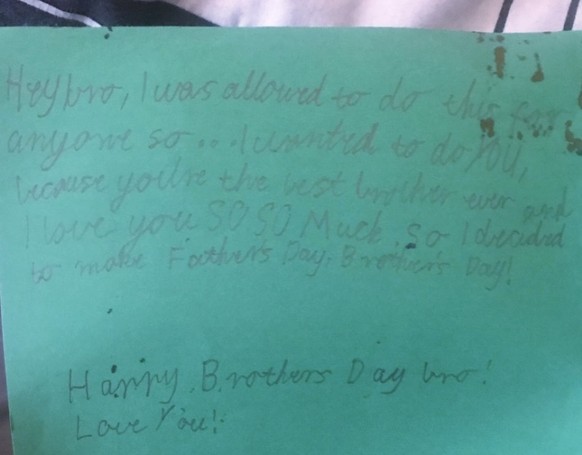 Hey bro, I was allowed to do this for
anyone so... I wanted to do YOU,
because you're the best brother ever and
I love you SO SO Much. So I decided
to make Father's Day, Brother's Day!
Happy Brothers Day bro!
Love You!